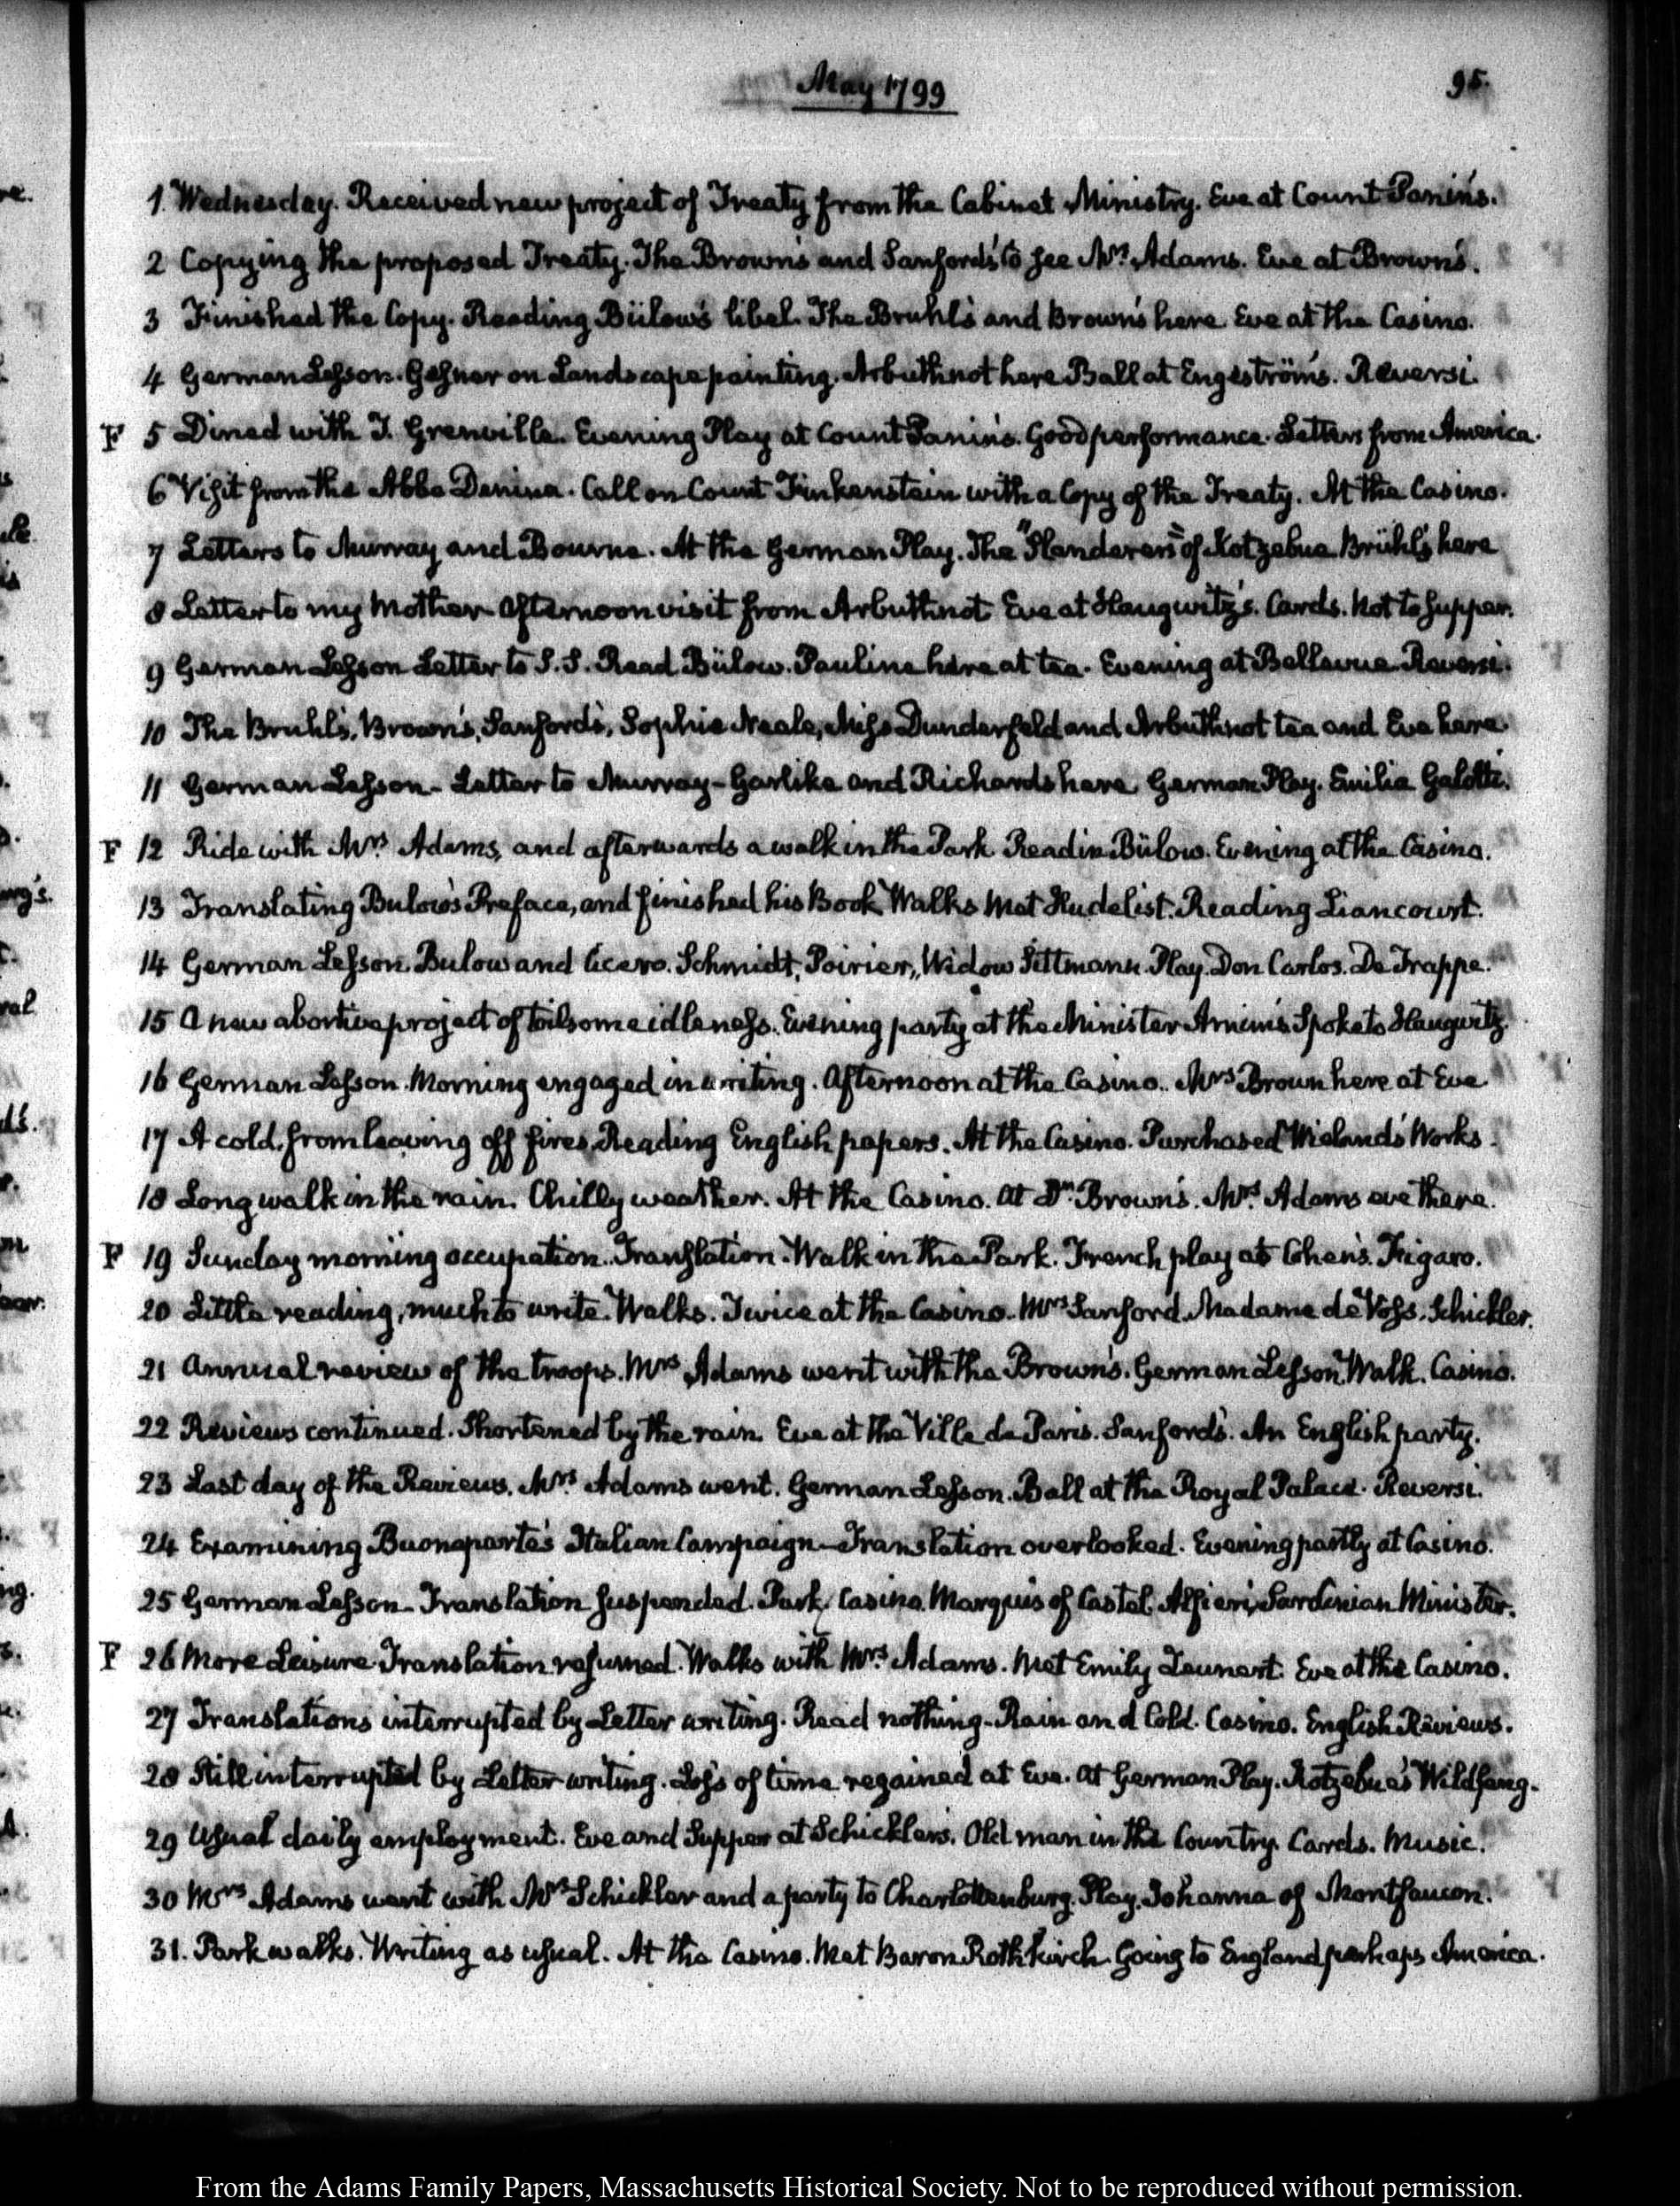 May 1799
95.
1. Wednesday. Received new project of Treaty from the Cabinet Ministry. Eve at Count Panin's.
2 Copying the proposed Treaty. The Brown's and Sanford's to see Mrs. Adams. Eve at Brown's.
3 Finished the Copy. Reading Bülow's libel. The Bruhl's and Brown's here Eve at the Casino.
4 German Lesson. Gesner on Landscape painting. Arbuthnot here Ball at Engeström's. Reversi.
F 5 Dined with T. Grenville. Evening Play at Count Panin's. Good performance. Letters from America.
6 Visit from the Abbe Denina. Call on Count Finkenstein with a Copy of the Treaty. At the Casino.
7 Letters to Murray and Bourne. At the German Play. The "Slanderers" of Kotzebue Brühl's here
8 Letter to my Mother Afternoon visit from Arbuthnot Eve at Haugwitz's. Cards. Not to supper.
9 German Lesson Letter to S.S. Read Bülow. Pauline here at tea. Evening at Bellevue. Reversi.
10 The Bruhl's, Brown's, Sanford's, Sophie Neale, Miss Dunderfeld and Arbuthnot tea and Eve here
11 German Lesson - Letter to Murray - Garlike and Richards here German Play. Emilia Galotti.
F 12 Ride with Mrs. Adams, and afterwards a walk in the Park Read in Bülow. Evening at the Casino.
13 Translating Bulow's Preface, and finished his Book Walks Met Hudelist. Reading Liancourt.
14 German Lesson. Bulow and Cicero. Schmidt, Poirier, Widow Sittmann. Play. Don Carlos. De Trappe.
15 A new abortive project of toilsome idleness. Evening party at the Minister Arnim's Spoke to Haugwitz.
16 German Lesson. Morning engaged in writing. Afternoon at the Casino. Mrs Brown here at Eve
17 A cold, from leaving off fires. Reading English papers. At the Casino. Purchased Wieland's Works.
18 Long walk in the rain. Chilly weather. At the Casino. At Dr. Brown's. Mrs. Adams eve there.
F 19 Sunday morning occupation. Translation. Walk in the Park. French play at Cohen's. Figaro.
20 Little reading, much to write. Walks. Twice at the Casino. Mrs Sanford. Madame de Voss. Schickler.
21 Annual review of the troops. Mrs Adams went with the Brown's. German Lesson. Walk. Casino.
22 Reviews continued. Shortened by the rain. Eve at the Ville de Paris. Sanford's. An English party.
23 Last day of the Reviews. Mrs. Adams went. German Lesson. Ball at the Royal Palace. Reversi.
24 Examining Buonaparte's Italian Campaign - Translation overlooked. Evening partly at Casino.
25 German Lesson - Translation suspended. Park, Casino. Marquis of Castel Alfieri, Sardinian Minister.
F 26 More Leisure. Translation resumed. Walks with Mrs. Adams. Met Emily Zeunert. Eve at the Casino.
27 Translations interrupted by Letter writing. Read nothing - Rain and Cold. Casino. English Reviews.
28 Still interrupted by Letter writing. Loss of time regained at Eve. At German Play. Kotzebue's Wildfang.
29 Usual daily employment. Eve and Supper at Schickler's. Old man in the Country. Cards. Music.
30 Mrs Adams went with Mrs Schickler and a party to Charlottenburg. Play. Johanna of Montfaucon.
31. Park walks. Writing as usual. At the Casino. Met Baron Rothkirch. Going to England perhaps America.
From the Adams Family Papers, Massachusetts Historical Society. Not to be reproduced without permission.